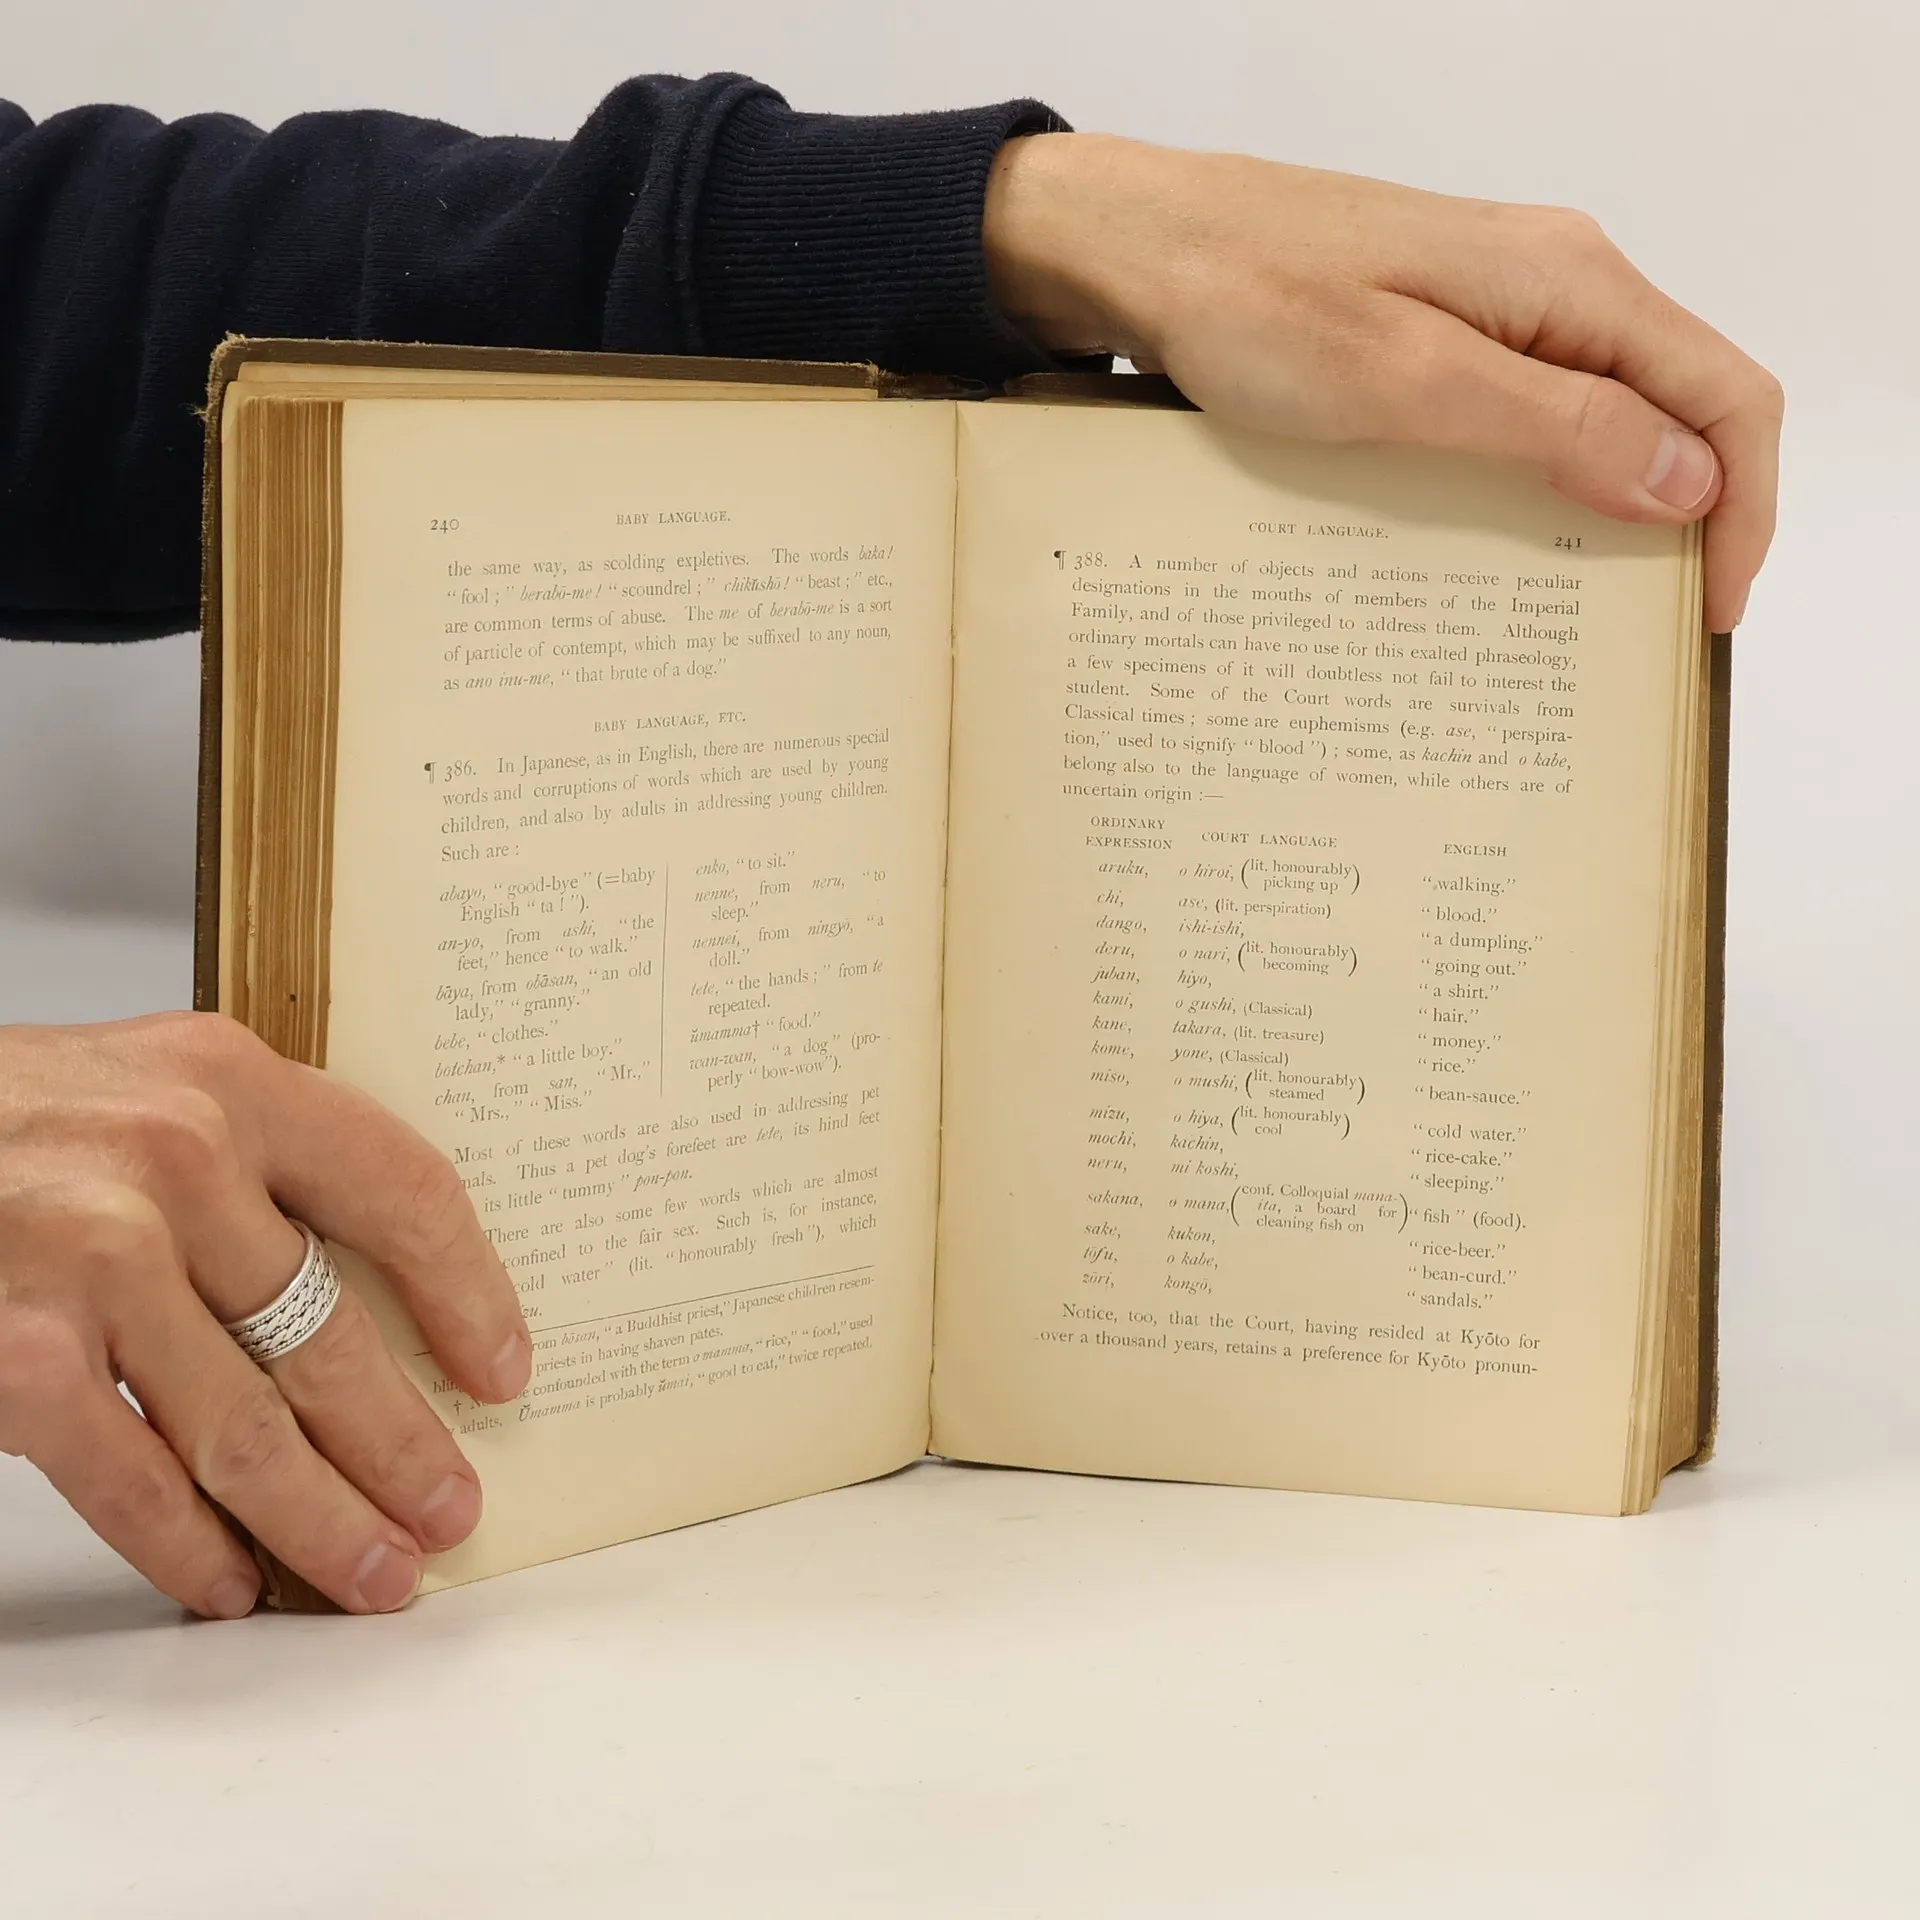 240 BABY LANGUAGE.
the same way, as scolding expletives. The words baka!
“fool;” berabō-me! “scoundrel;” chikŭshō! “beast;” etc.,
are common terms of abuse. The me of berabō-me is a sort
of particle of contempt, which may be suffixed to any noun,
as ano inu-me, “that brute of a dog.”
BABY LANGUAGE, ETC.
¶ 386. In Japanese, as in English, there are numerous special
words and corruptions of words which are used by young
children, and also by adults in addressing young children.
Such are :
abayo, “good-bye” (=baby
English “ta!”).
an-yo, from ashi, “the
feet,” hence “to walk.”
bāya, from obāsan, “an old
lady,” “granny.”
bebe, “clothes.”
botchan,* “a little boy.”
chan, from san, “Mr.,”
“Mrs.,” “Miss.”
enko, “to sit.”
nenne, from neru, “to
sleep.”
nennei, from ningyō, “a
doll.”
tete, “the hands;” from te
repeated.
ŭmamma† “food.”
wan-wan, “a dog” (pro-
perly “bow-wow”).
Most of these words are also used in addressing pet
mals. Thus a pet dog's forefeet are tete, its hind feet
its little “tummy” pon-pon.
There are also some few words which are almost
confined to the fair sex. Such is, for instance,
cold water” (lit. “honourably fresh”), which
zu.
rom bōsan, “a Buddhist priest,” Japanese children resem-
blin priests in having shaven pates.
† N be confounded with the term o mamma, “rice,” “food,” used
adults. Ŭmamma is probably ŭmai, “good to eat,” twice repeated.
COURT LANGUAGE. 241
¶ 388. A number of objects and actions receive peculiar
designations in the mouths of members of the Imperial
Family, and of those privileged to address them. Although
ordinary mortals can have no use for this exalted phraseology,
a few specimens of it will doubtless not fail to interest the
student. Some of the Court words are survivals from
Classical times; some are euphemisms (e.g. ase, “perspira-
tion,” used to signify “blood”); some, as kachin and o kabe,
belong also to the language of women, while others are of
uncertain origin :—
ORDINARY EXPRESSION COURT LANGUAGE ENGLISH
aruku, o hiroi, (lit. honourably picking up) “walking.”
chi, ase, (lit. perspiration) “blood.”
dango, ishi-ishi, “a dumpling.”
deru, o nari, (lit. honourably becoming) “going out.”
juban, hiyo, “a shirt.”
kami, o gushi, (Classical) “hair.”
kane, takara, (lit. treasure) “money.”
kome, yone, (Classical) “rice.”
miso, o mushi, (lit. honourably steamed) “bean-sauce.”
mizu, o hiya, (lit. honourably cool) “cold water.”
mochi, kachin, “rice-cake.”
neru, mi koshi, “sleeping.”
sakana, o mana, (conf. Colloquial mana-ita, a board for cleaning fish on) “fish” (food).
sake, kukon, “rice-beer.”
tōfu, o kabe, “bean-curd.”
zōri, kongō, “sandals.”
Notice, too, that the Court, having resided at Kyōto for
over a thousand years, retains a preference for Kyōto pronun-